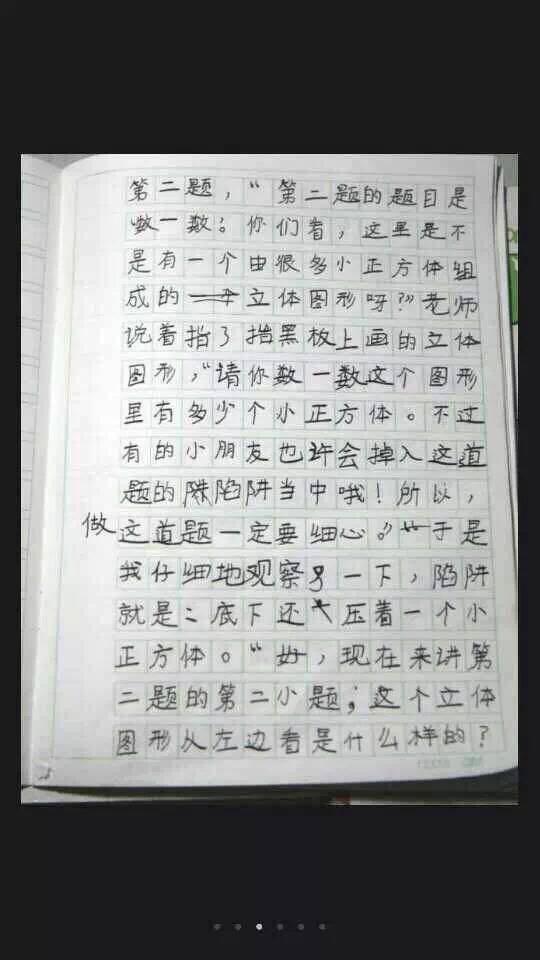 第二题，“第二题的题目是
数一数：你们看，这里是不
是有一个由很多小正方体组
成的立体图形呀？”老师
说着指了指黑板上画的立体
图形，“请你数一数这个图形
里有多少个小正方体。不过
有的小朋友也许会掉入这道
题的陷阱当中哦！所以，
做这道题一定要细心。”于是
我仔细地观察了一下，陷阱
就是：底下还压着一个小
正方体。“好，现在来讲第
二题的第二小题；这个立体
图形从左边看是什么样的？